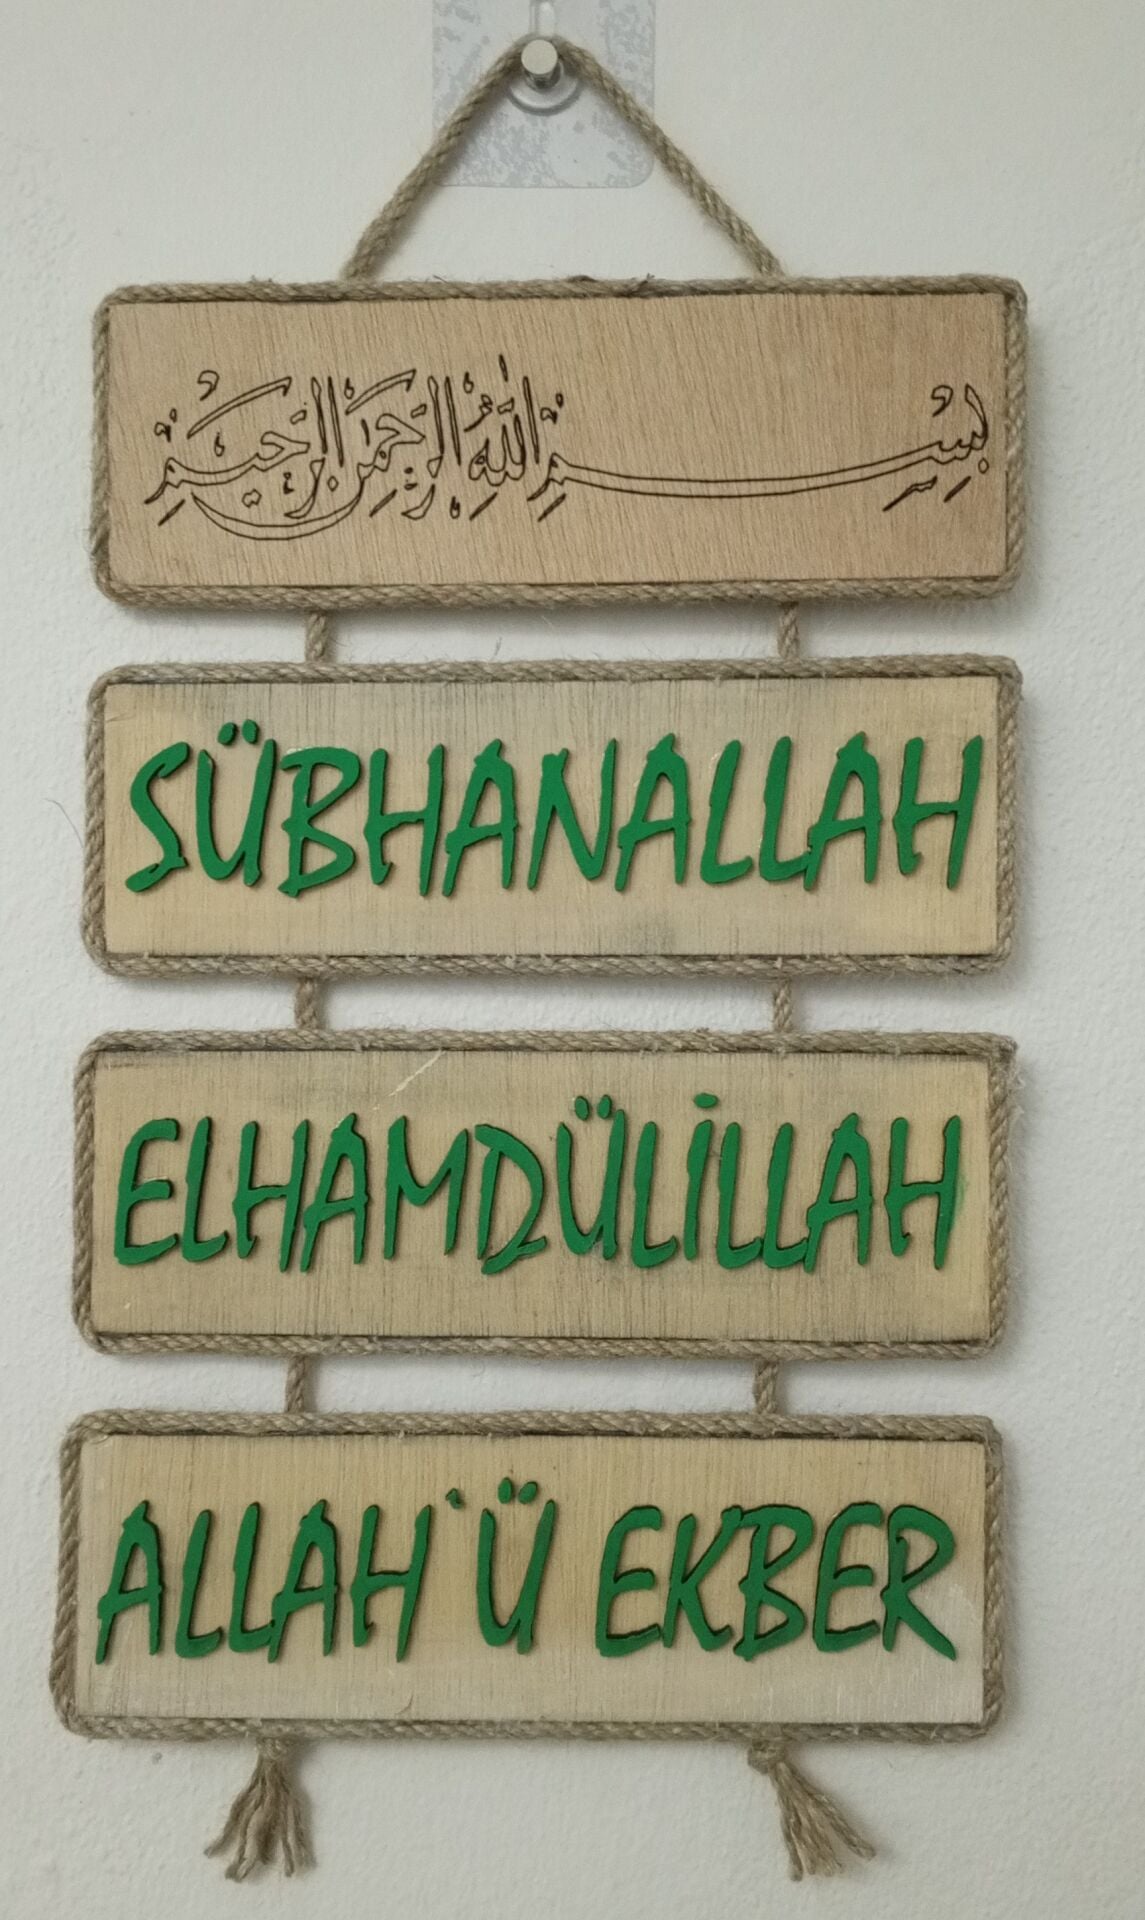 بِسْمِ اللهِ الرَّحْمٰنِ الرَّحِيْمِ
SÜBHANALLAH
ELHAMDÜLİLLAH
ALLAH`Ü EKBER